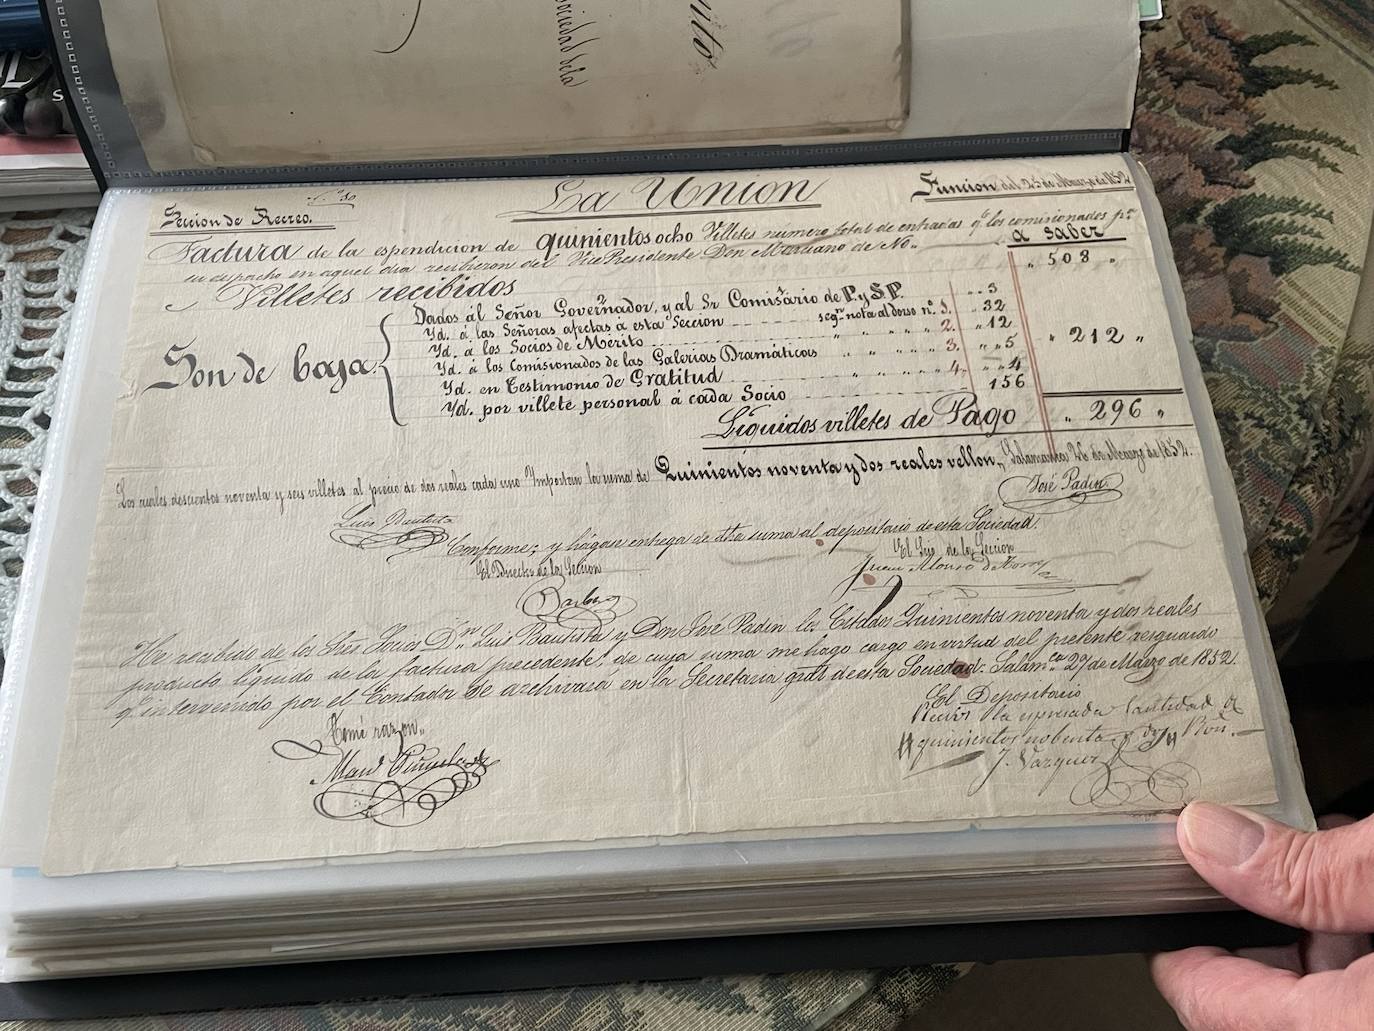 sociedad de la
La Union
Seccion de Recreo.
Funcion del 25 de Marzo de 1852
Factura de la espendicion de quinientos ocho Villetes número total de entradas q.e los comisionados p.a
su despacho en aquel dia recibieron del Vice Presidente Don Mariano de No.. a saber
Villetes recibidos „ 508 „
Son de baja
Dados al Señor Governador, y al Sr Comisario de P. y S. P. „ 3
Yd. á las Señoras afectas á esta Seccion segn nota al dorso nº. 1. „ 32
Yd. á los Socios de Merito „ „ „ „ 2. „ 12
Yd. á los Comisionados de las Galerias Dramáticas „ „ „ „ 3. „ 5
Yd. en Testimonio de Gratitud „ „ „ „ 4. „ 4
Yd. por villete personal á cada Socio 156
„ 212 „
Líquidos villetes de Pago „ 296 „
Los cuales doscientos noventa y seis villetes al precio de dos reales cada uno Ymportan la suma de Quinientos noventa y dos reales vellon„ Salamanca 26 de Marzo de 1852.
Luis Bautista
José Padin
Conforme; y hágan entrega de dha suma al depositario de esta Sociedad.
El Director de la Seccion
El Srio de la Seccion
Juan Alonso de
He recibido de los Sres Socios Dn Luis Bautista y Don José Padin los Citados Quinientos noventa y dos reales
producto líquido de la factura precedente, de cuya suma me hago cargo en virtud del presente resguardo
q.e intervenido por el Contador se archivará en la Secretaria gral de esta Sociedad. Salam.ca 27 de Marzo de 1852.
El Depositario
Tomé razon„
Recivi la espresada Cantidad de
# quinientos nobenta y dos # Rvn.
J. Vazquez